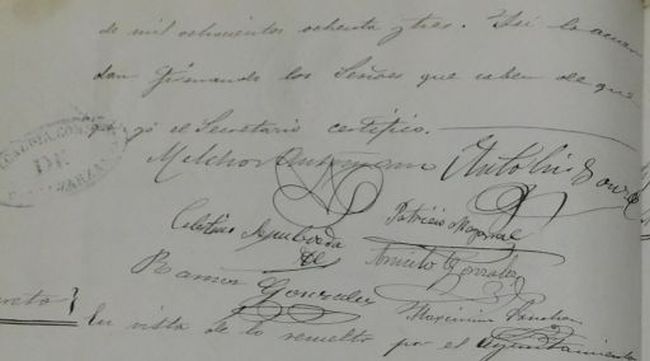 de mil ochocientos ochenta y tres. Así lo acuer
dan firmando los Señores que saben de que
yo el Secretario certifico.
Melchor
Antolin Gonz
Celestino Sepulveda
Patricio Mayoral
Aniceto Gonzalez
Ramon Gonzalez
Maximino Sanchez
En vista de lo resuelto por el Ayuntamiento